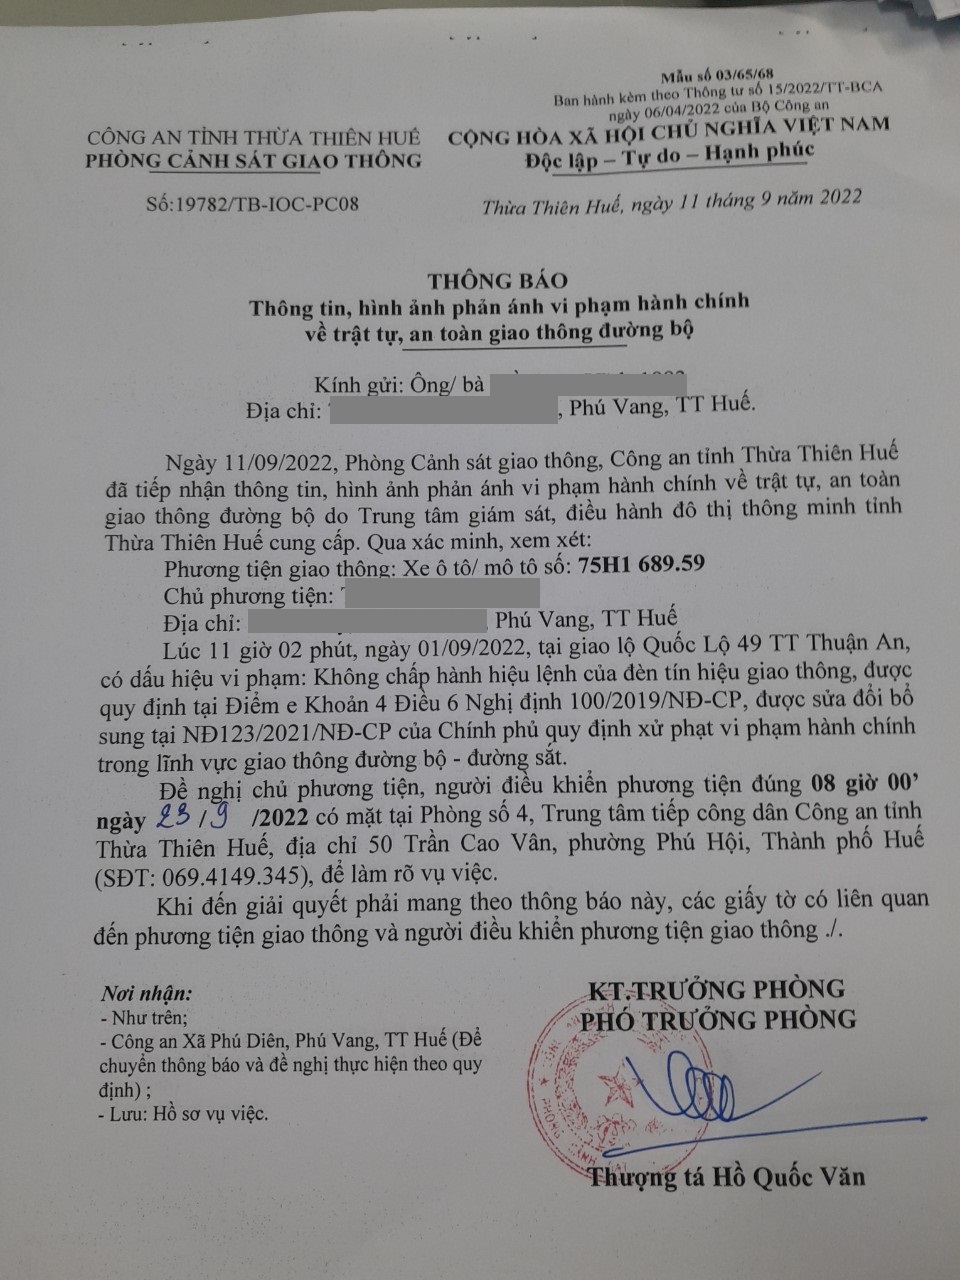 Mẫu số 03/65/68
Ban hành kèm theo Thông tư số 15/2022/TT-BCA
ngày 06/04/2022 của Bộ Công an
CÔNG AN TỈNH THỪA THIÊN HUẾ
CỘNG HÒA XÃ HỘI CHỦ NGHĨA VIỆT NAM
PHÒNG CẢNH SÁT GIAO THÔNG
Độc lập – Tự do – Hạnh phúc
Số:19782/TB-IOC-PC08
Thừa Thiên Huế, ngày 11 tháng 9 năm 2022
THÔNG BÁO
Thông tin, hình ảnh phản ánh vi phạm hành chính
về trật tự, an toàn giao thông đường bộ
Kính gửi: Ông/ bà
Địa chỉ: , Phú Vang, TT Huế.
Ngày 11/09/2022, Phòng Cảnh sát giao thông, Công an tỉnh Thừa Thiên Huế
đã tiếp nhận thông tin, hình ảnh phản ánh vi phạm hành chính về trật tự, an toàn
giao thông đường bộ do Trung tâm giám sát, điều hành đô thị thông minh tỉnh
Thừa Thiên Huế cung cấp. Qua xác minh, xem xét:
Phương tiện giao thông: Xe ô tô/ mô tô số: 75H1 689.59
Chủ phương tiện:
Địa chỉ: , Phú Vang, TT Huế
Lúc 11 giờ 02 phút, ngày 01/09/2022, tại giao lộ Quốc Lộ 49 TT Thuận An,
có dấu hiệu vi phạm: Không chấp hành hiệu lệnh của đèn tín hiệu giao thông, được
quy định tại Điểm e Khoản 4 Điều 6 Nghị định 100/2019/NĐ-CP, được sửa đổi bổ
sung tại NĐ123/2021/NĐ-CP của Chính phủ quy định xử phạt vi phạm hành chính
trong lĩnh vực giao thông đường bộ - đường sắt.
Đề nghị chủ phương tiện, người điều khiển phương tiện đúng 08 giờ 00’
ngày 23/9 /2022 có mặt tại Phòng số 4, Trung tâm tiếp công dân Công an tỉnh
Thừa Thiên Huế, địa chỉ 50 Trần Cao Vân, phường Phú Hội, Thành phố Huế
(SĐT: 069.4149.345), để làm rõ vụ việc.
Khi đến giải quyết phải mang theo thông báo này, các giấy tờ có liên quan
đến phương tiện giao thông và người điều khiển phương tiện giao thông ./.
Nơi nhận:
- Như trên;
- Công an Xã Phú Diên, Phú Vang, TT Huế (Để
chuyển thông báo và đề nghị thực hiện theo quy
định) ;
- Lưu: Hồ sơ vụ việc.
KT.TRƯỞNG PHÒNG
PHÓ TRƯỞNG PHÒNG
Thượng tá Hồ Quốc Văn